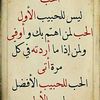 الحب
ليس للحبيب الأول
الحب لمن اهتم بك وأوفى
ولمن إذا ما أردته في كل
مرة أتى
الحب للحبيب الأفضل